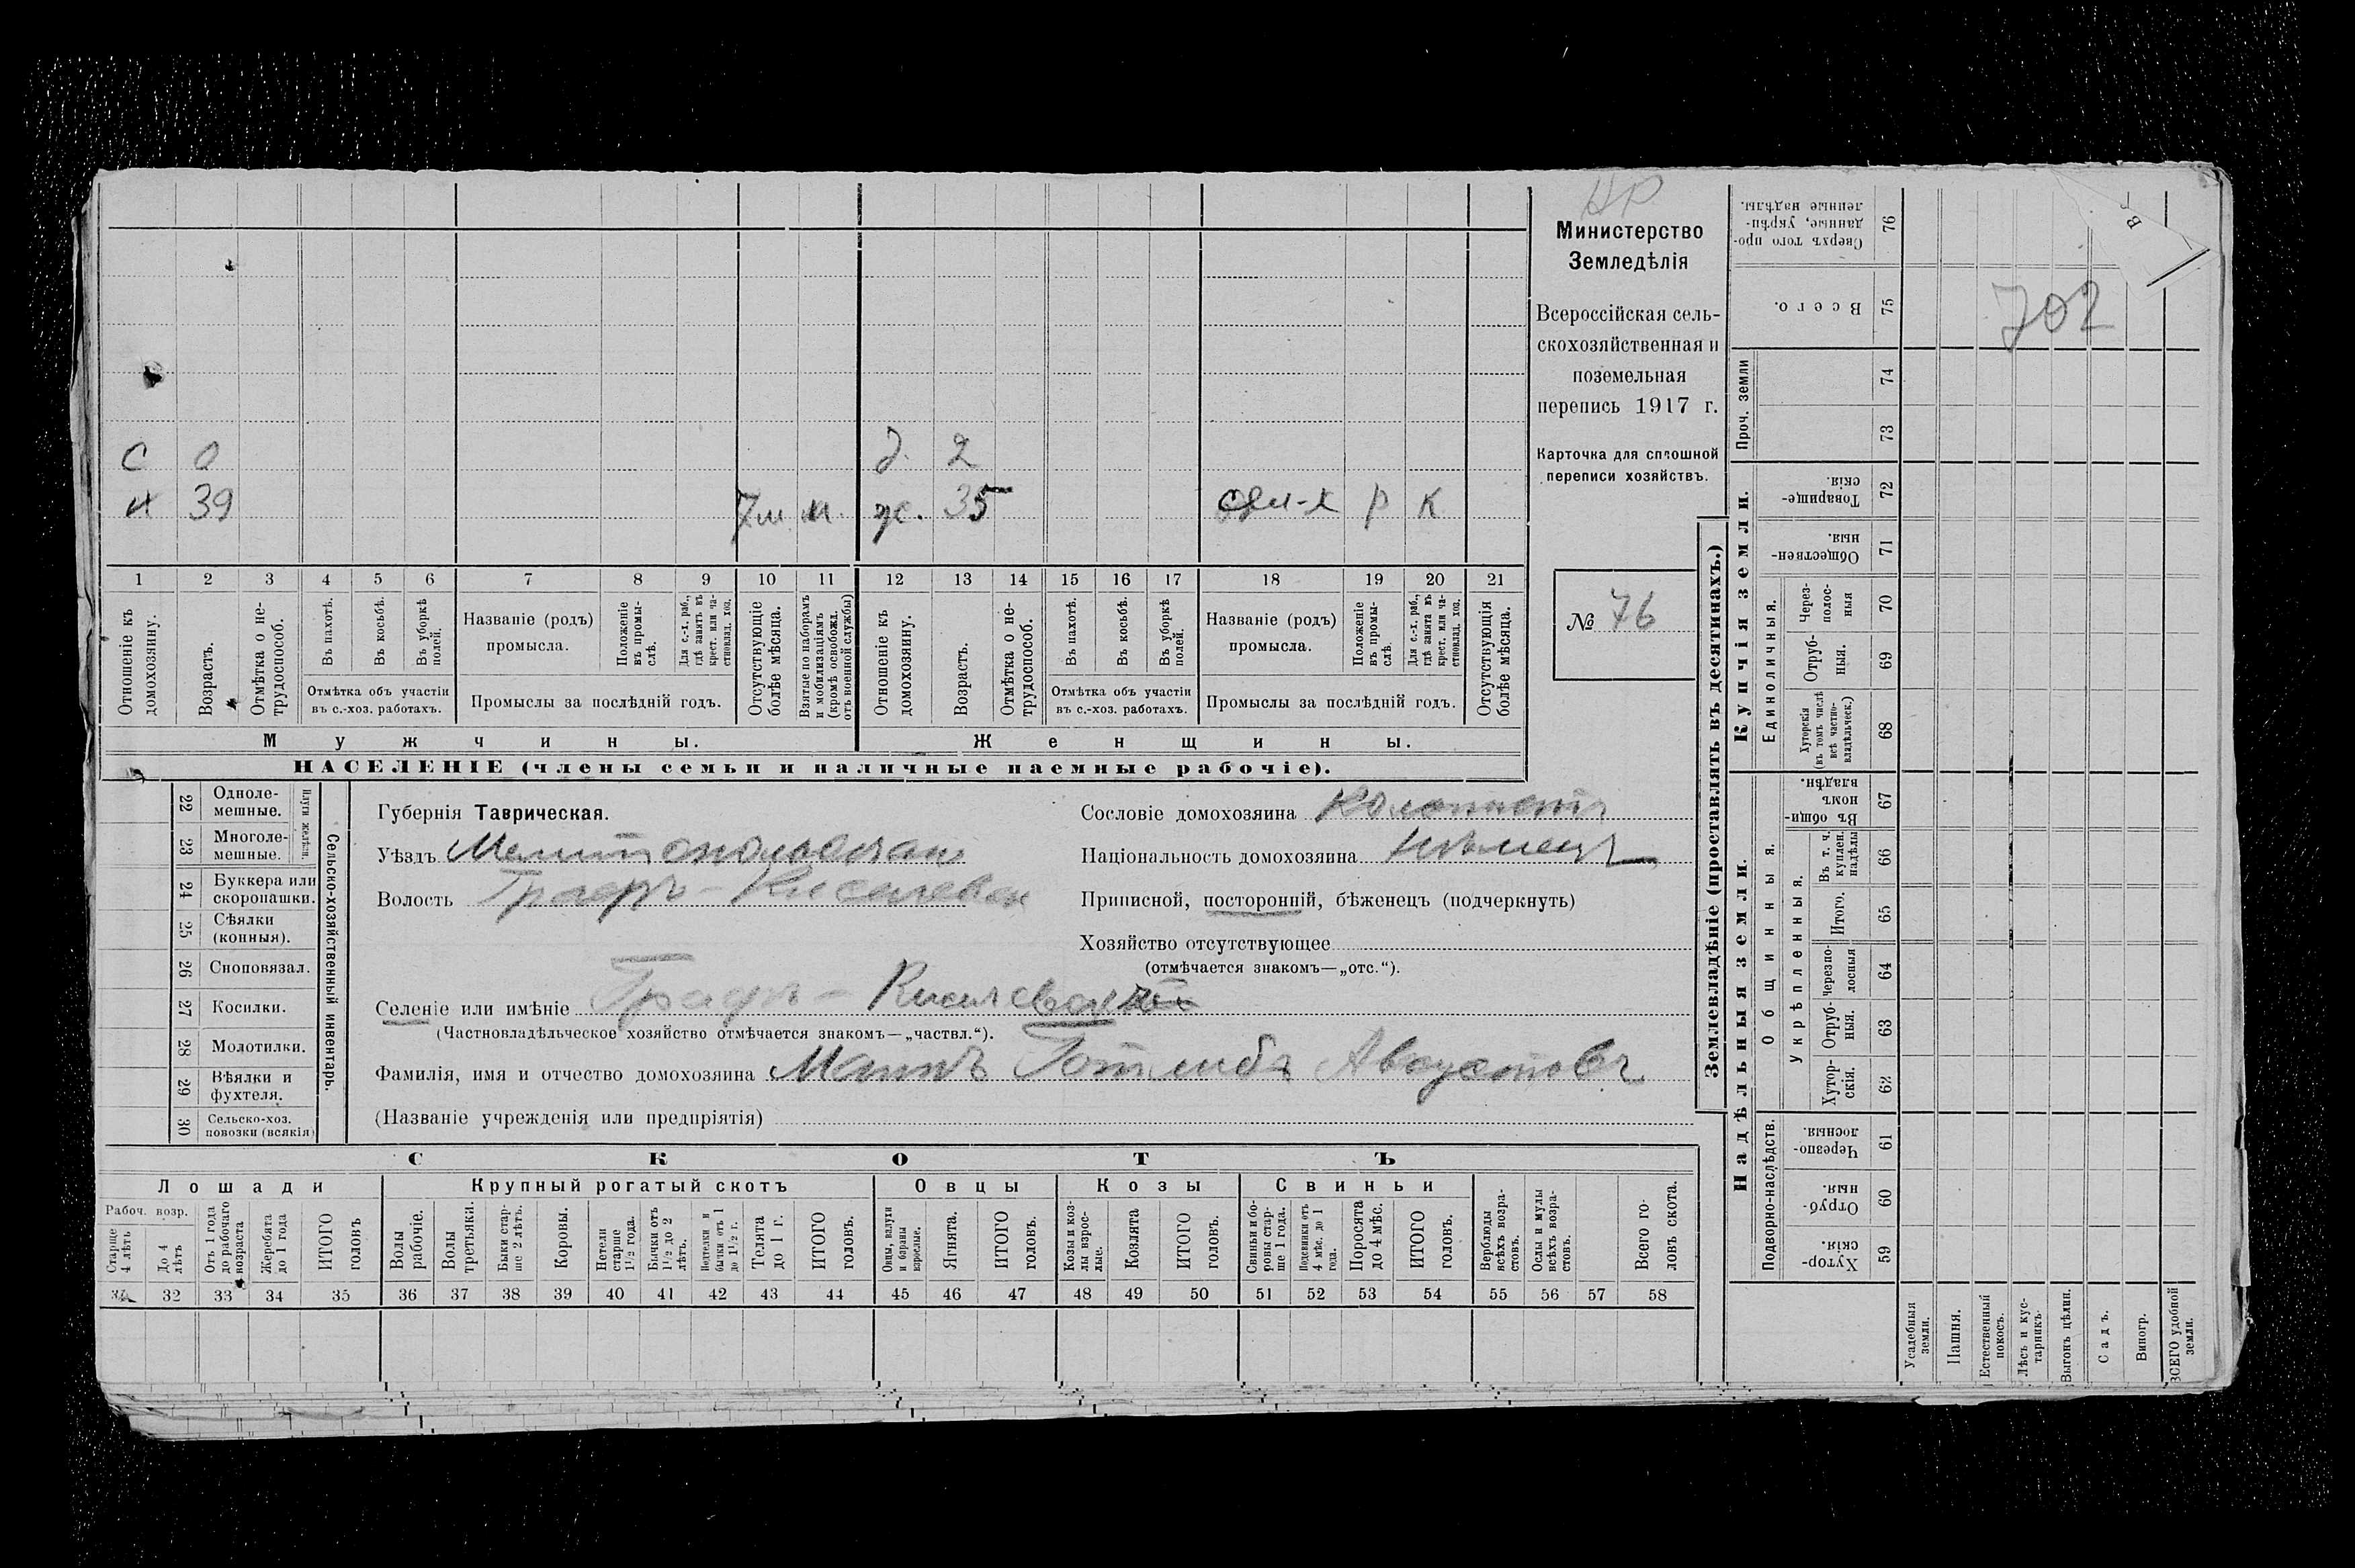 НР
Министерство
Земледѣлія
Всероссійская сель-
скохозяйственная и
поземельная
перепись 1917 г.
Карточка для сплошной
переписи хозяйствъ.
№ 76
С 0 д. 2
х 39 7м м. ж. 35 р к
1 2 3 4 5 6 7 8 9 10 11 12 13 14 15 16 17 18 19 20 21
Отношеніе къ домохозяину.
Возрастъ.
Отмѣтка о не-трудоспособ.
Въ пахотѣ.
Въ косьбѣ.
Въ уборкѣ полей.
Отмѣтка объ участіи
въ с.-хоз. работахъ.
Названіе (родъ)
промысла.
Положеніе въ промы-слѣ.
Для с.-х. раб., гдѣ занятъ въ крест. или ча-стновлад. хоз.
Промыслы за послѣдній годъ.
Отсутствующіе болѣе мѣсяца.
Взятые по наборамъ и мобилизаціямъ (кромѣ освобожд. отъ военной службы)
Отношеніе къ домохозяину.
Возрастъ.
Отмѣтка о не-трудоспособ.
Въ пахотѣ.
Въ косьбѣ.
Въ уборкѣ полей.
Отмѣтка объ участіи
въ с.-хоз. работахъ.
Названіе (родъ)
промысла.
Положеніе въ промы-слѣ.
Для с.-х. раб., гдѣ занята въ крест. или ча-стновлад. хоз.
Промыслы за послѣдній годъ.
Отсутствующія болѣе мѣсяца.
Мужчины.
Женщины.
НАСЕЛЕНІЕ (члены семьи и наличные наемные рабочіе).
Сельско-хозяйственный инвентарь.
Плуги желѣзн.
22 Одноле-мешные.
23 Многоле-мешные.
24 Буккера или скоропашки.
25 Сѣялки (конныя).
26 Сноповязал.
27 Косилки.
28 Молотилки.
29 Вѣялки и фухтеля.
30 Сельско-хоз. повозки (всякія)
Губернія Таврическая.
Уѣздъ
Волость Графъ-Киселевск
Селеніе или имѣніе Графъ-Киселевка
(Частновладѣльческое хозяйство отмѣчается знакомъ—„частвл.“).
Фамилія, имя и отчество домохозяина Манъ Готлибъ Августовъ
(Названіе учрежденія или предпріятія)
Сословіе домохозяина Колонистъ
Національность домохозяина Нѣмецъ
Приписной, посторонній, бѣженецъ (подчеркнуть)
Хозяйство отсутствующее
(отмѣчается знакомъ—„отс.“).
СКОТЪ
Лошади
Рабоч. возр.
Старше 4 лѣтъ
До 4 лѣтъ
Отъ 1 года до рабочаго возраста
Жеребята до 1 года
ИТОГО головъ
Крупный рогатый скотъ
Волы рабочіе.
Волы третьяки.
Быки стар-ше 2 лѣтъ.
Коровы.
Нетели старше 1½ года.
Бычки отъ 1½ до 2 лѣтъ.
Нетелки и бычки отъ 1 до 1½ г.
Телята до 1 г.
ИТОГО головъ.
Овцы
Овцы, валухи и бараны взрослые.
Ягнята.
ИТОГО головъ.
Козы
Козы и коз-лы взрос-лые.
Козлята
ИТОГО головъ.
Свиньи
Свиньи и бо-ровы стар-ше 1 года.
Подсвинки отъ 4 мѣс. до 1 года.
Поросята до 4 мѣс.
ИТОГО головъ.
Верблюды всѣхъ возра-стовъ.
Ослы и мулы всѣхъ возра-стовъ.
Всего го-ловъ скота.
31 32 33 34 35 36 37 38 39 40 41 42 43 44 45 46 47 48 49 50 51 52 53 54 55 56 57 58
Землевладѣніе (проставлять въ десятинахъ.)
Купчія земли.
Надѣльныя земли.
Сверхъ того про-данные, укрѣп-ленные надѣлы. 76
Всего. 75
702
Проч. земли
74
73
Товарище-скія. 72
Обществен-ныя. 71
Единоличныя.
Через-полос-ныя 70
Отруб-ныя. 69
Хуторскія (въ томъ числѣ всѣ частно-владѣльческ.) 68
Общинныя.
Въ общи-номъ владѣн. 67
Укрѣпленныя.
Въ т. ч. куплен. надѣлы 66
Итого. 65
Черезпо-лосныя 64
Отруб-ныя. 63
Хутор-скія. 62
Подворно-наслѣдств.
Черезпо-лосныя. 61
Отруб-ныя. 60
Хутор-скія. 59
Усадебныя земли.
Пашня.
Естественный покосъ.
Лѣсъ и кус-тарникъ.
Выгонъ цѣлин.
Садъ.
Виногр.
ВСЕГО удобной земли.